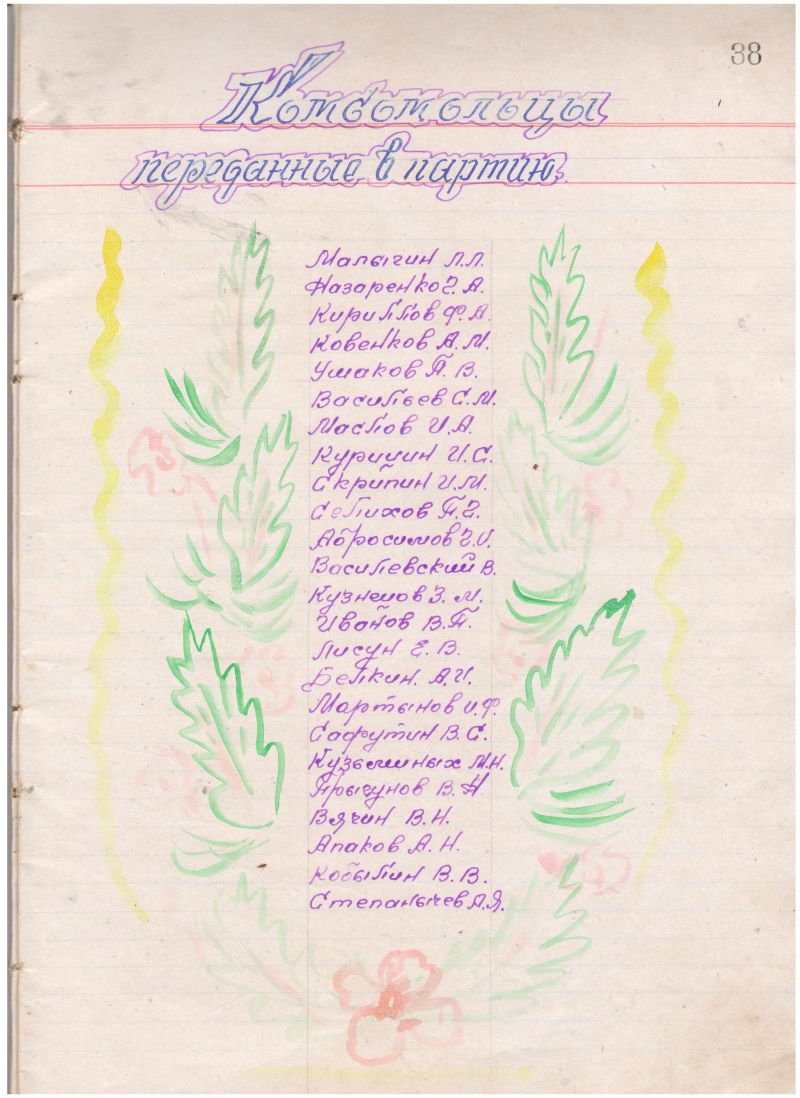 38
Комсомольцы
переданные в партию
Малыгин Л.Л.
Назаренко Г.А.
Кириллов Ф.А.
Ковенков А.М.
Ушаков П.В.
Васильев С.М.
Маслов И.А.
Курицин И.С.
Скрипин И.М.
Селихов П.Г.
Абросимов Г.И.
Василевский В.
Кузнецов З.М.
Иванов В.П.
Лисун Е.В.
Белкин А.И.
Мартынов И.Ф.
Сафутин В.С.
Кузьминых М.Н.
Прыгунов В.Н
Вячин В.Н.
Апаков А.Н.
Кобылин В.В.
Степанычев А.Я.